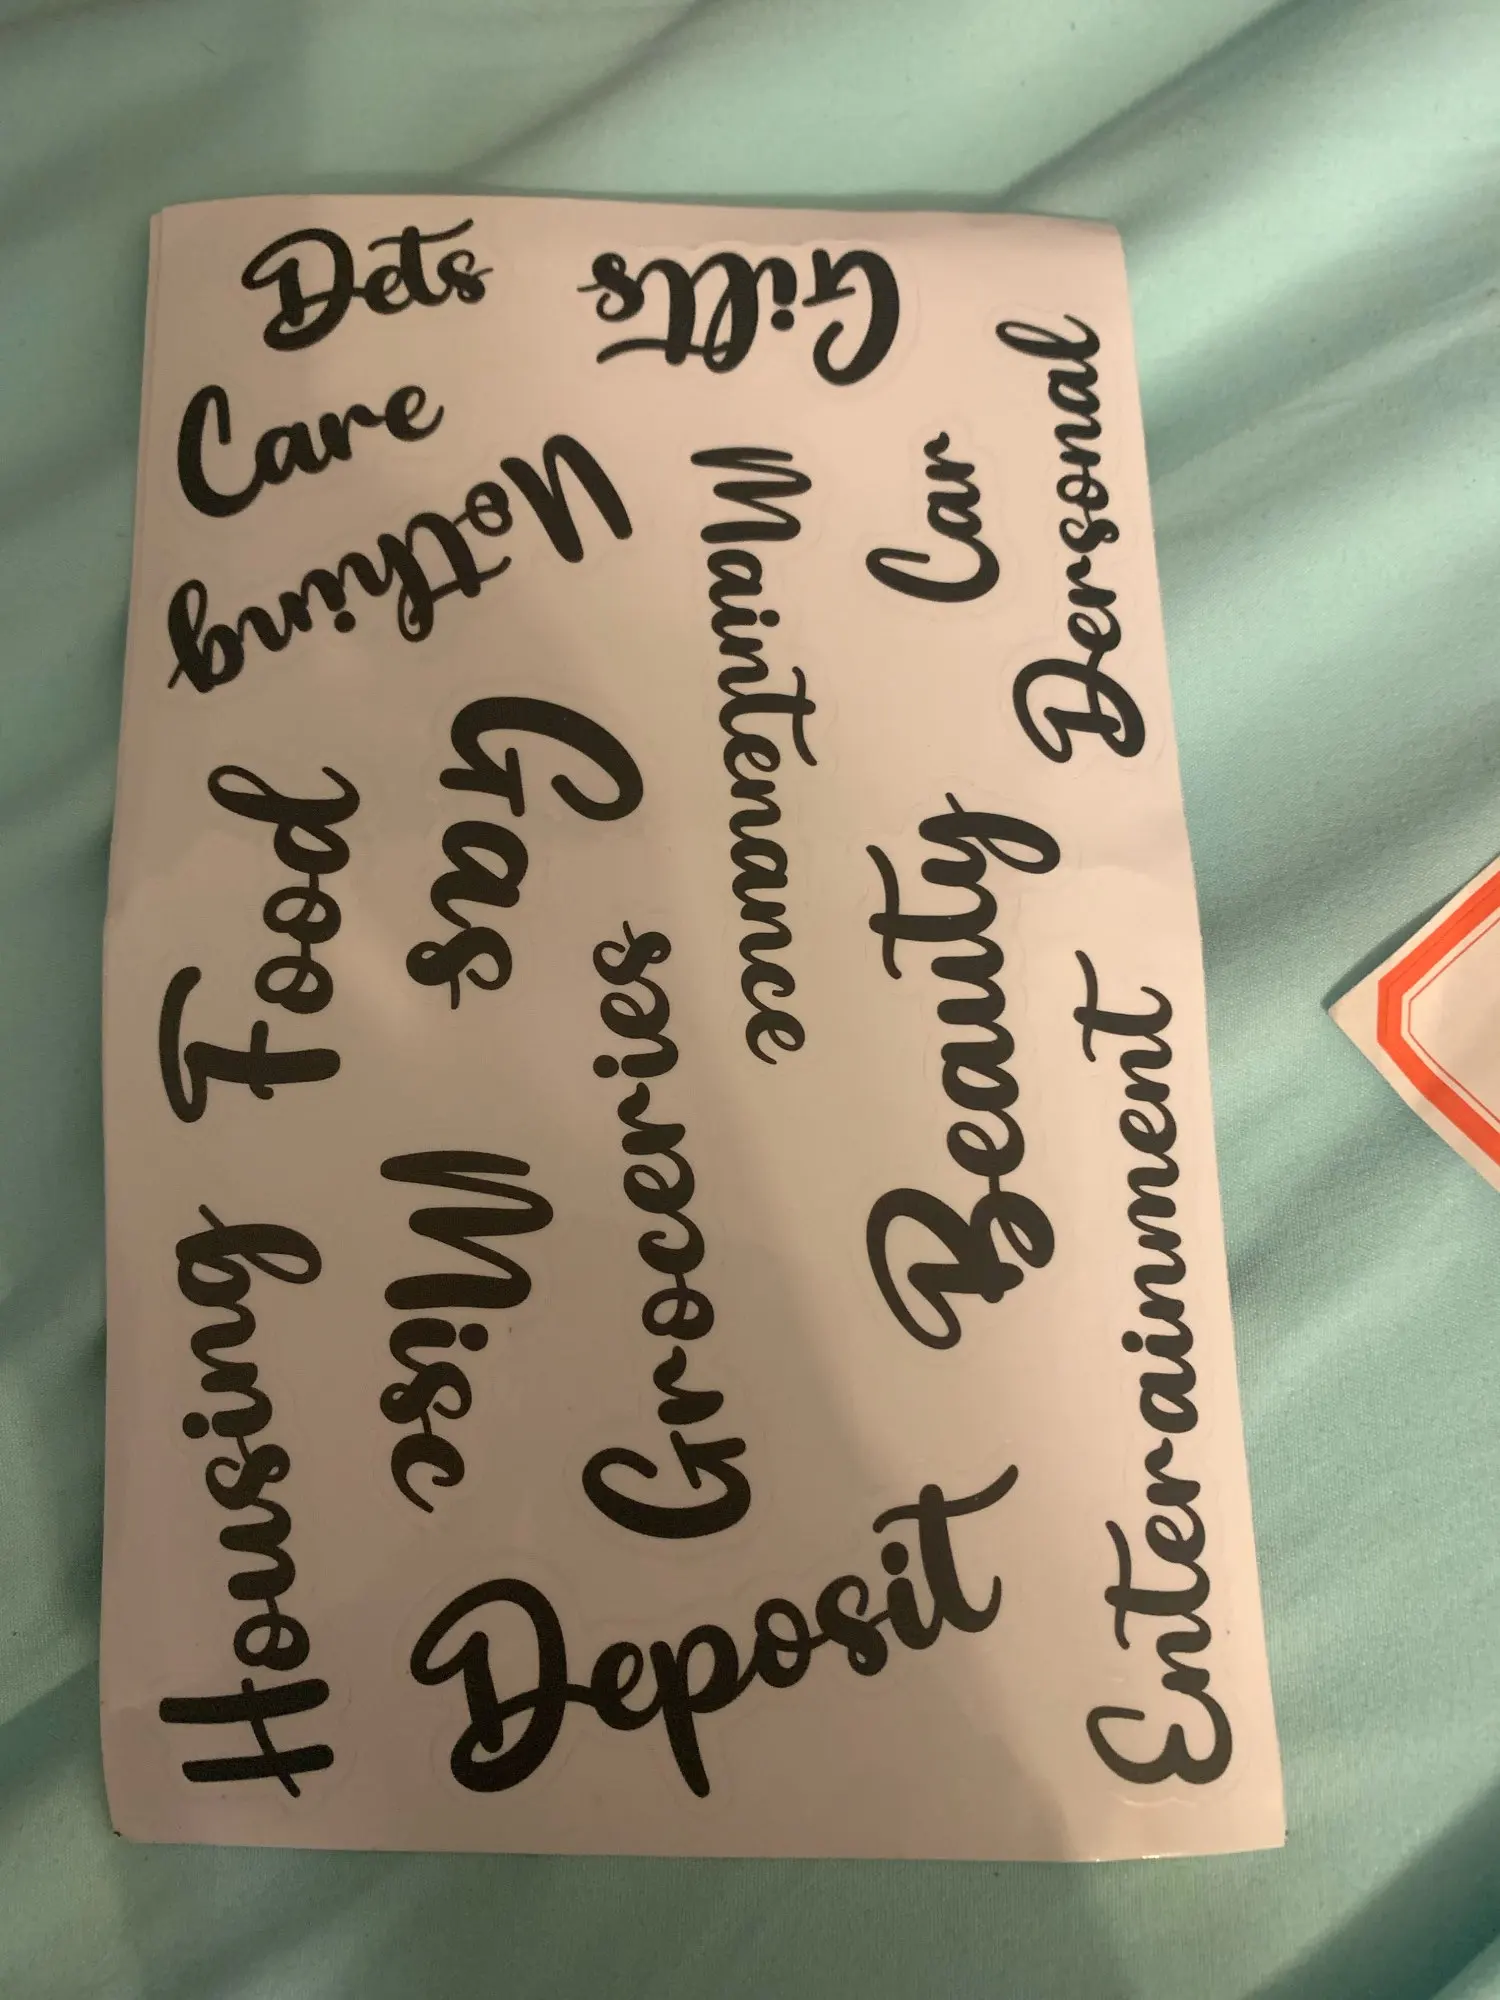 Pets
Gifts
Care
Clothing
Maintenance
Car
Personal
Food
Gas
Groceries
Beauty
Housing
Misc
Deposit
Enterainment